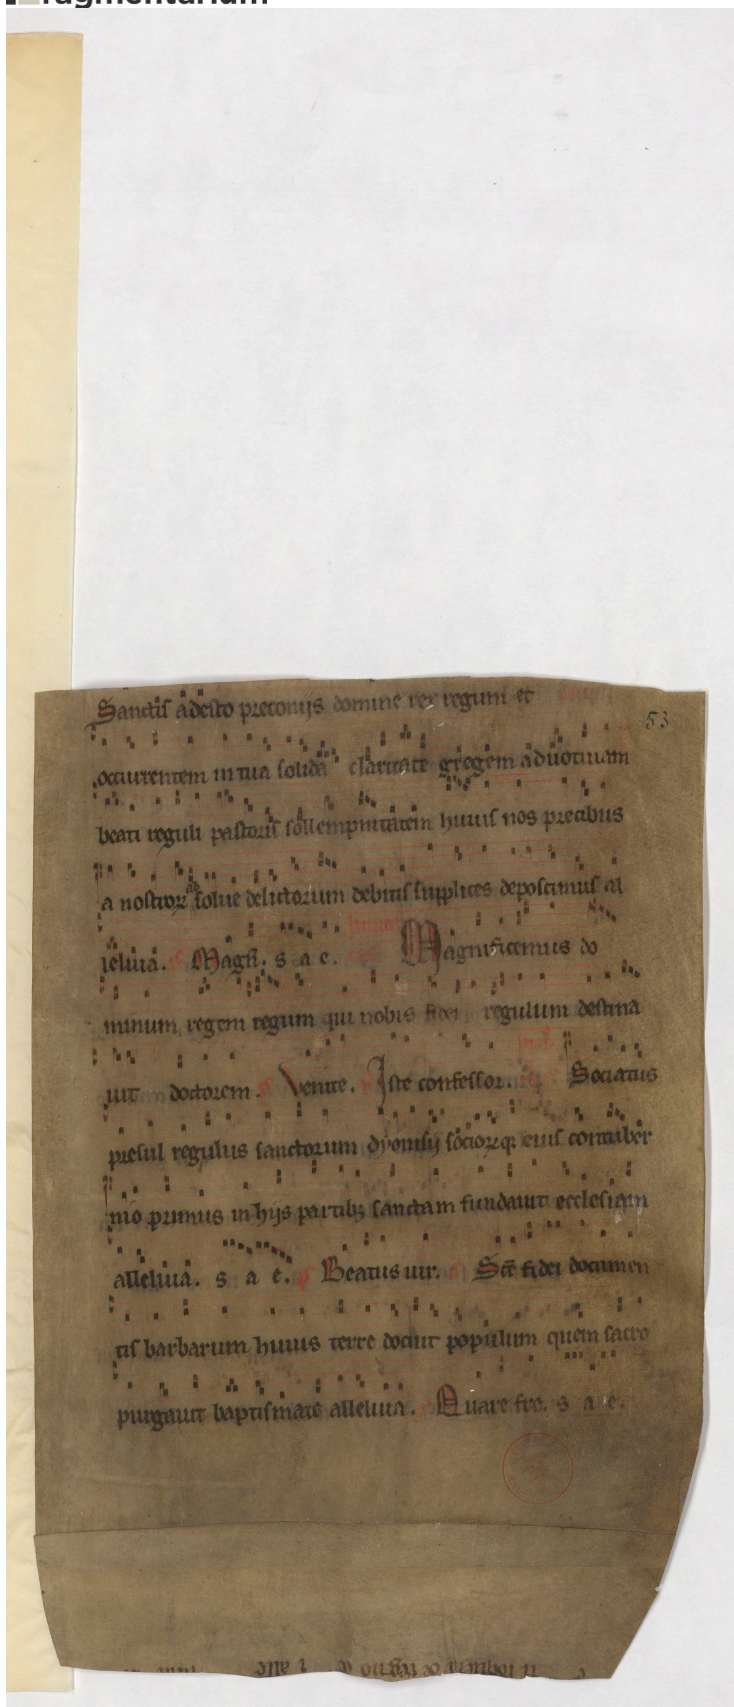 Sanctis adesto preconijs domine rex regum et
53
occurrentem in tua solida claritate gregem ad uotiuam
beati reguli pastoris sollempnitatem huius nos precibus
a nostror ab solue delictorum debitis supplices deposcimus al
leluia. ps Magn̄. s a e. Magnificemus do
minum regem regum qui nobis fidei regulum destina
uit doctorem. ps Venite. Iste confessor. Sociatus
presul regulus sanctorum dyonisij sociorq; eius contuber
nio primus in hijs partib; sanctam fundauit ecclesiam
alleluia. s a e. ps Beatus uir. Scē fidei documen
tis barbarum huius terre docuit populum quem sacro
purgauit baptismate alleluia. Quare fre. s a e.